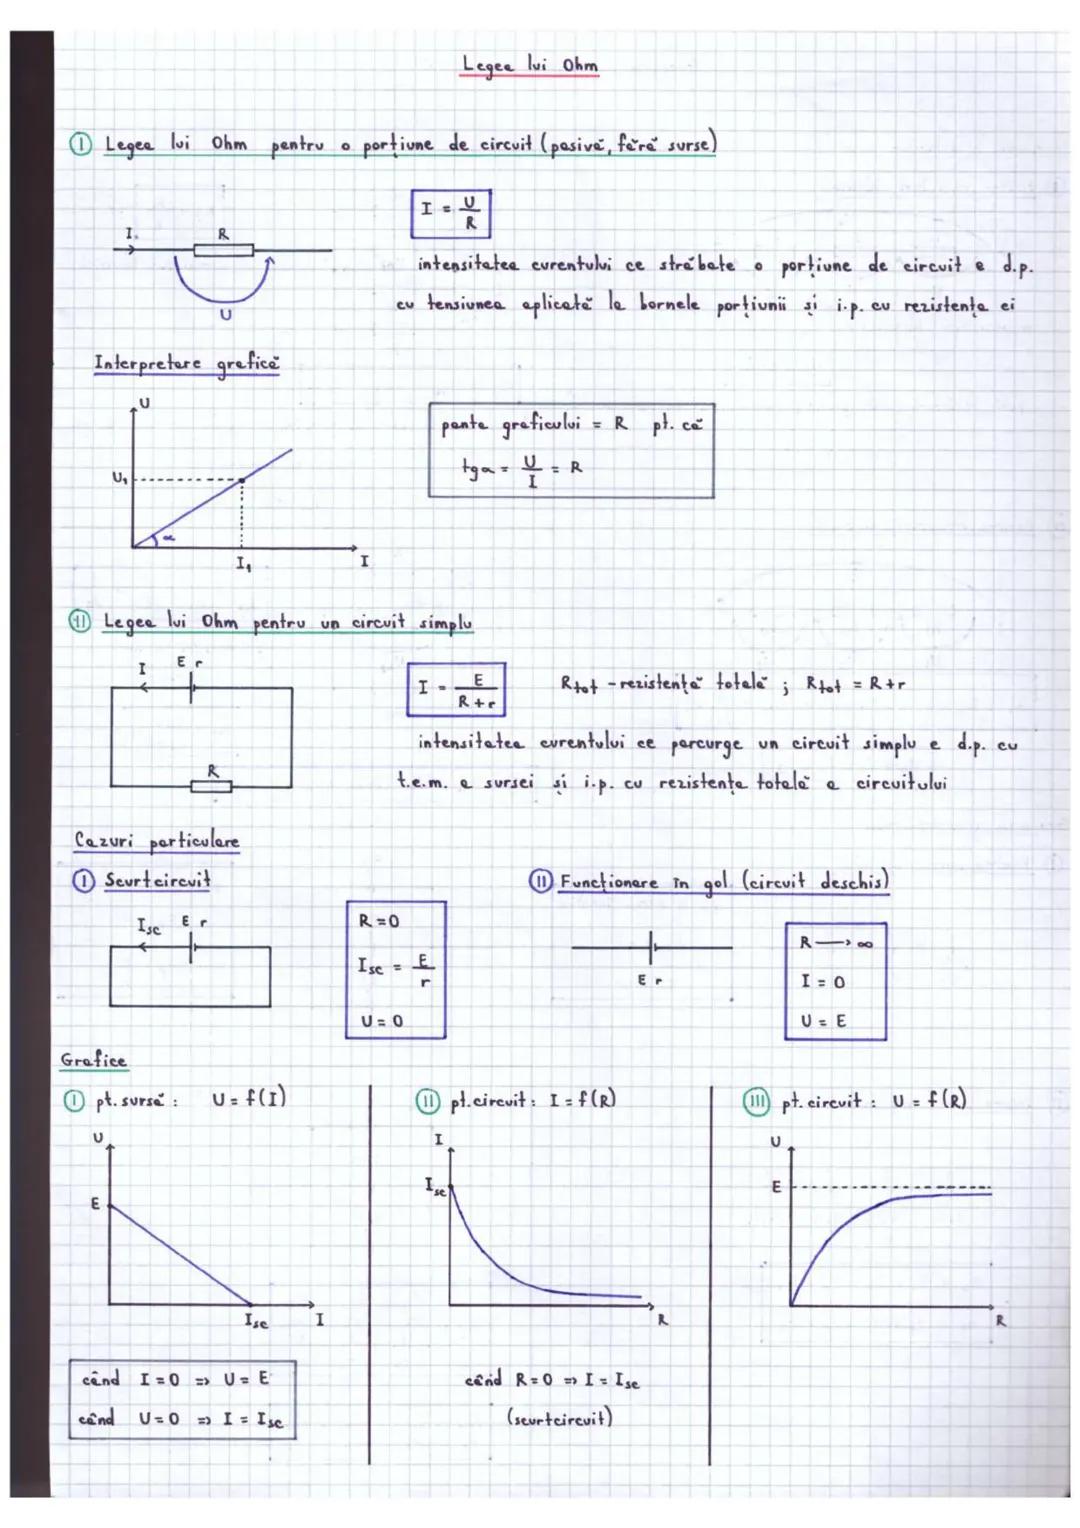 Legea lui Ohm
I Legea lui Ohm pentru o porțiune de circuit (pasivă, fără surse)
I = U/R
I R
U
intensitatea curentului ce străbate o porțiune de circuit e d.p.
cu tensiunea aplicată la bornele porțiunii și i.p. cu rezistența ei
Interpretare grafică
U
U₁
α
I₁
I
panta graficului = R pt. că
tgα = U/I = R
II Legea lui Ohm pentru un circuit simplu
I E r
R
I = E/(R+r) Rtot - rezistență totală ; Rtot = R+r
intensitatea curentului ce parcurge un circuit simplu e d.p. cu
t.e.m. a sursei și i.p. cu rezistența totală a circuitului
Cazuri particulare
I Scurtcircuit
Isc E r
R = 0
Isc = E/r
U = 0
II Funcționare în gol (circuit deschis)
E r
R → ∞
I = 0
U = E
Grafice
I pt. sursă : U = f(I)
U
E
Isc I
când I = 0 => U = E
când U = 0 => I = Isc
II pt. circuit : I = f(R)
I
Isc
R
când R = 0 => I = Isc
(scurtcircuit)
III pt. circuit : U = f(R)
U
E
R